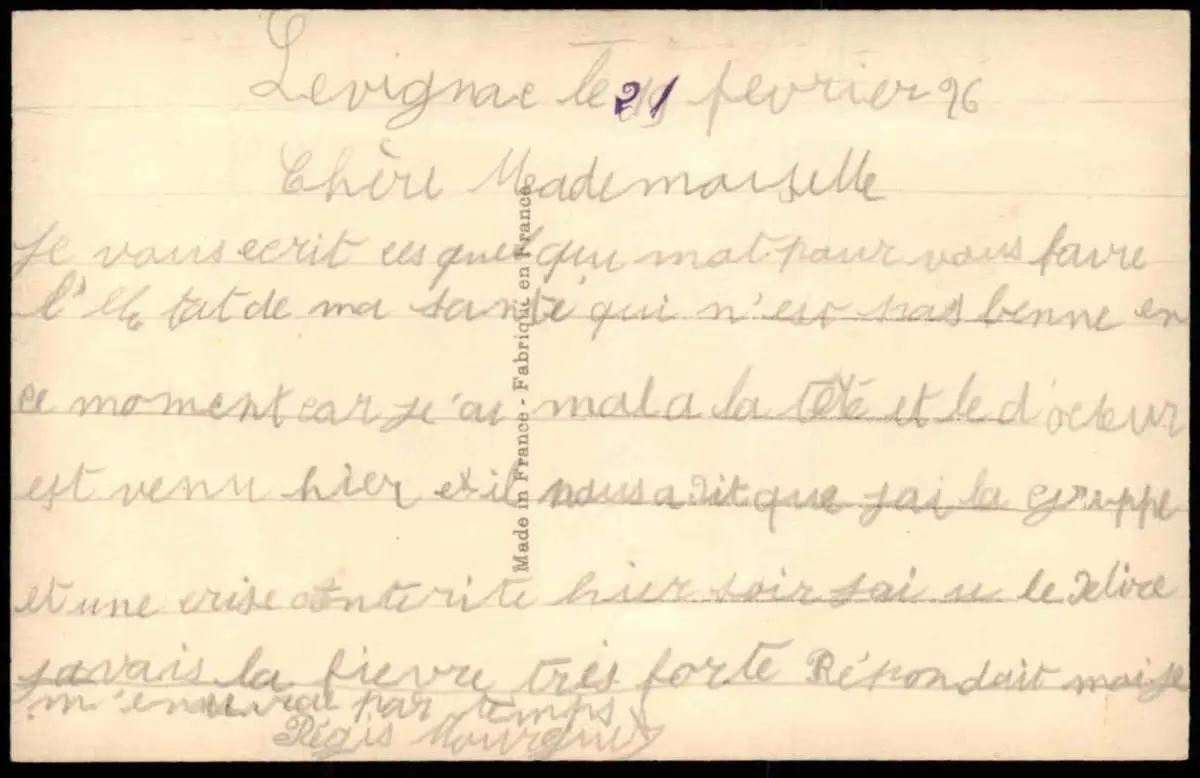 Levignac le 21 fevrier 96
Chère Mademoiselle
Je vous ecrit ces quelqui mot pour vous favre
l'etat de ma santé qui n'est pas benne en
ce moment car je'ai mal a la tête et le d'octeur
est venu hier et il nous a dit que jai la grippe
et une crise enterite hier soir jai u le delire
javais la fievre très forte Répondait moi je
par temps
Régis
Made in France - Fabriqué en France